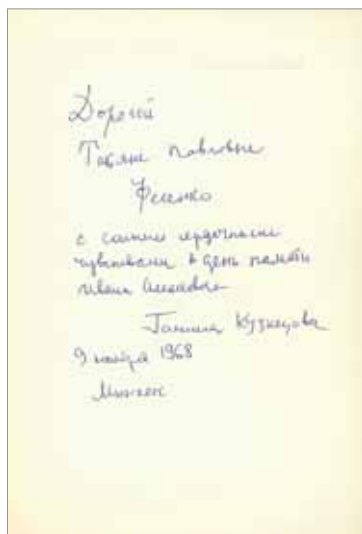 Дорогой
Татьяне Павловне
Фесенко
с самыми сердечными
чувствами в день памяти
Ивана Алексеевича
Галина Кузнецова
9 ноября 1968
Мюнхен